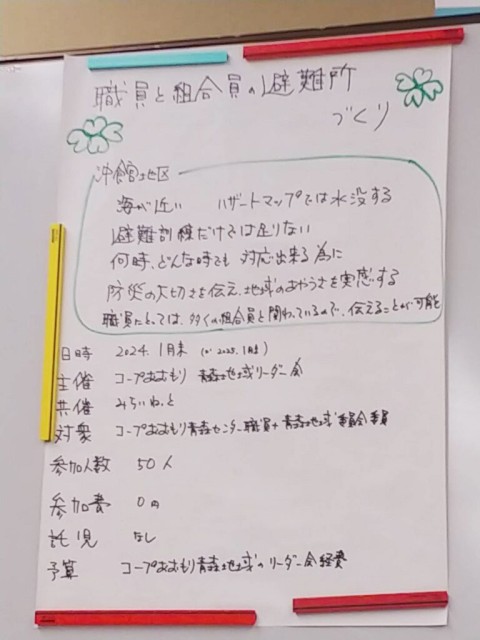 職員と組合員の避難所
づくり
沖館地区
海が近い ハザードマップでは水没する
避難訓練だけでは足りない
何時、どんな時でも 対応出来る為に
防災の大切さを伝え、地域のあやうさを実感する
職員にとっては、多くの組合員と関わっているので、伝えることが可能
日時 2024. 1月末 (or 2025. 1月末)
主催 コープあおもり 青森地域リーダー会
共催 みらいねっと
対象 コープあおもり青森センター職員+青森地域委員会委員
参加人数 50人
参加費 0円
託児 なし
予算 コープあおもり青森地域のリーダー会経費